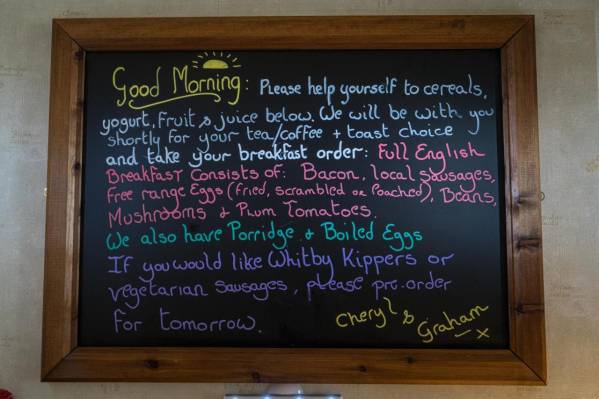 Good Morning: Please help yourself to cereals,
yogurt, fruit & juice below. We will be with you
shortly for your tea/coffee + toast choice
and take your breakfast order: Full English
Breakfast consists of: Bacon, local sausages,
free range Eggs (fried, scrambled or Poached), Beans,
Mushrooms & Plum Tomatoes.
We also have Porridge & Boiled Eggs
If you would like Whitby Kippers or
vegetarian sausages, please pre-order
for tomorrow.
Cheryl & Graham x